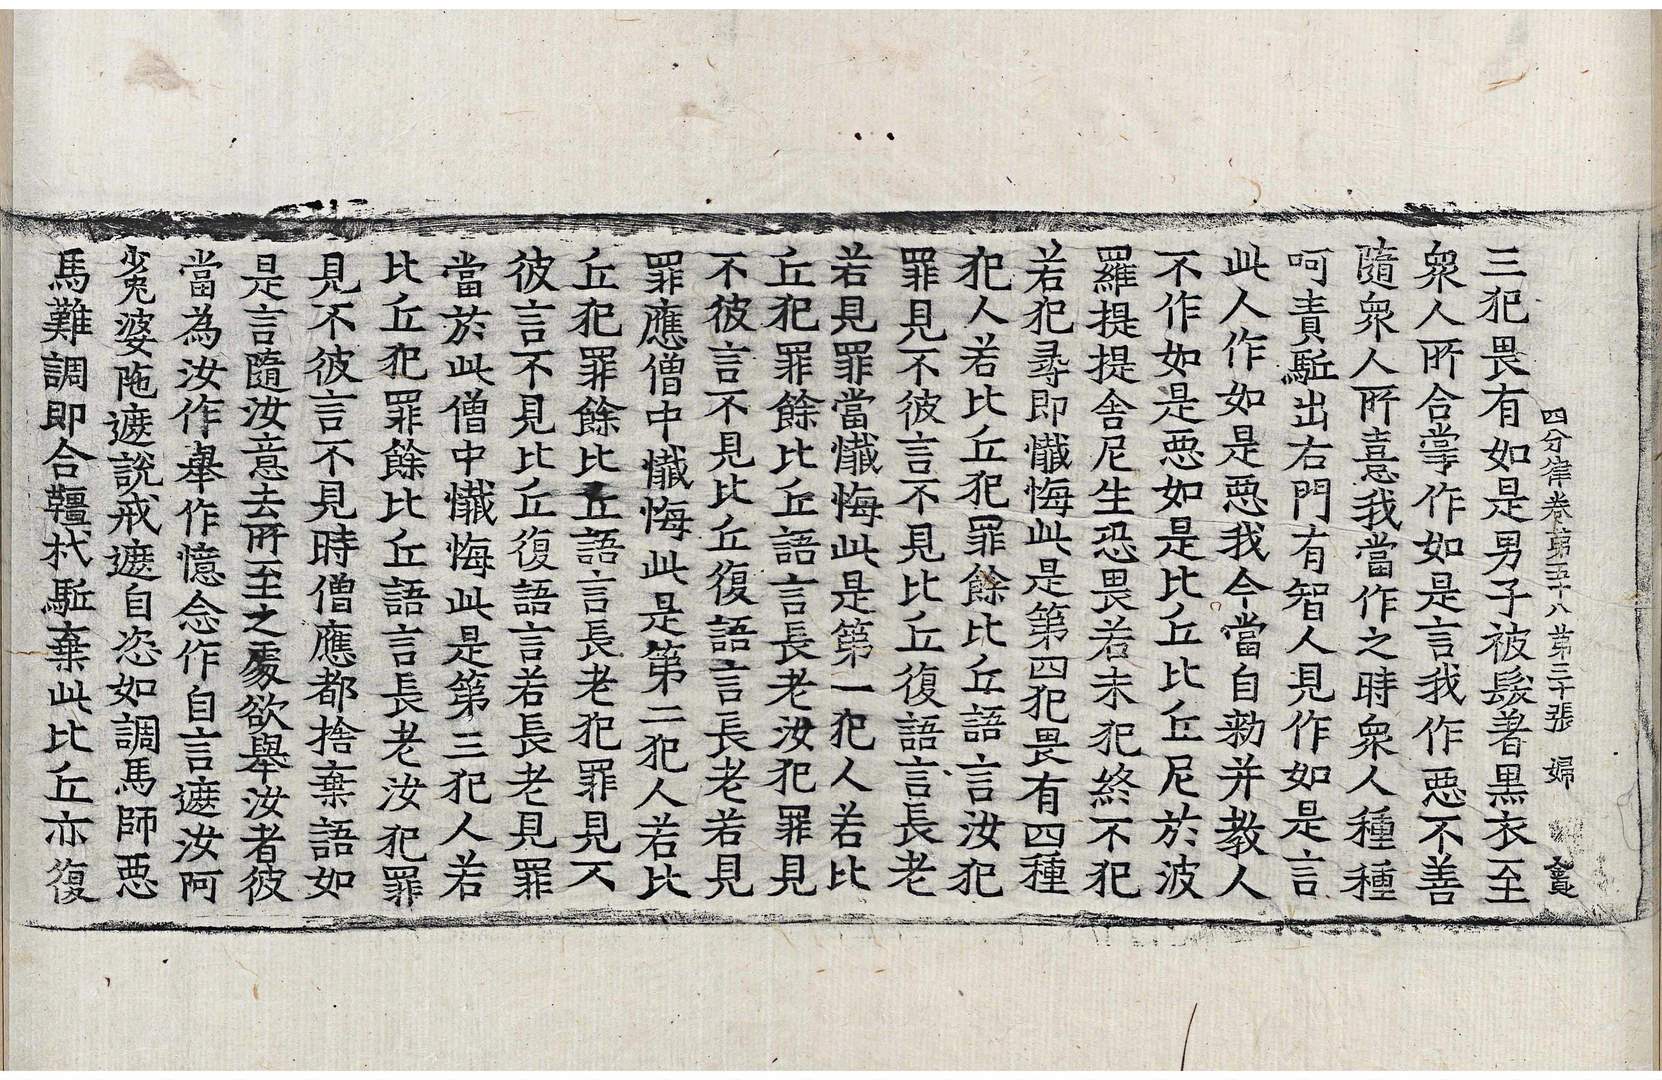 四分律卷第五十八 第三十張 婦
三犯畏有如是男子被髮著黑衣至
衆人所合掌作如是言我作惡不善
隨衆人所憙我當作之時衆人種種
呵責駈出右門有智人見作如是言
此人作如是惡我今當自勅并教人
不作如是惡如是比丘比丘尼於波
羅提提舍尼生恐畏若未犯終不犯
若犯尋即懺悔此是第四犯畏有四種
犯人若比丘犯罪餘比丘語言汝犯
罪見不彼言不見比丘復語言長老
若見罪當懺悔此是第一犯人若比
丘犯罪餘比丘語言長老汝犯罪見
不彼言不見比丘復語言長老若見
罪應僧中懺悔此是第二犯人若比
丘犯罪餘比丘語言長老犯罪見不
彼言不見比丘復語言若長老見罪
當於此僧中懺悔此是第三犯人若
比丘犯罪餘比丘語言長老汝犯罪
見不彼言不見時僧應都捨棄語如
是言隨汝意去所至之處欲舉汝者彼
當為汝作舉作憶念作自言遮汝阿
㝹婆陁遮說戒遮自恣如調馬師惡
馬難調即合韁杙駈棄此比丘亦復